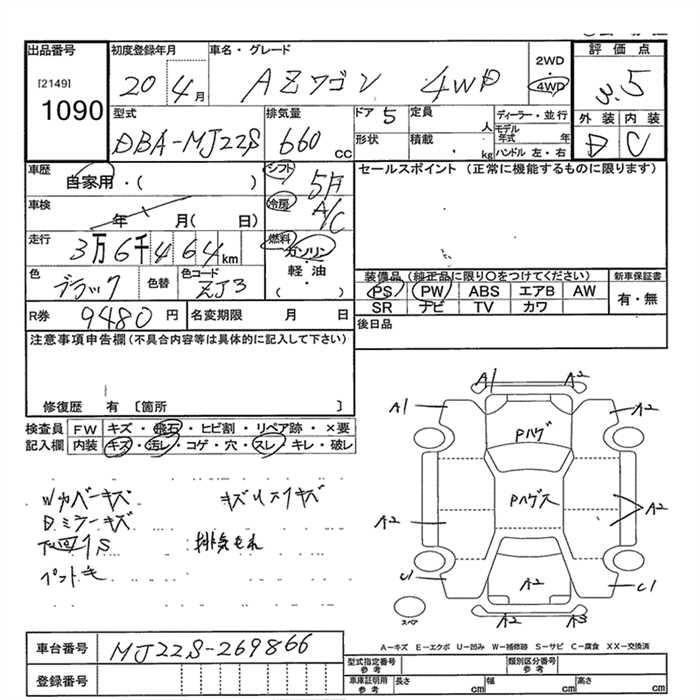 出品番号 初度登録年月 車名・グレード 2WD・4WD 評価点
[2149] 1090 20 4月 AZワゴン 4WD 3.5
型式 排気量 ドア 5 定員 人 ディーラー・並行 外装 内装
DBA-MJ22S 660 cc 形状 積載 . kg モデル年式 年 D C
ハンドル 左・右
車歴 自家用・( ) シフト 5F セールスポイント (正常に機能するものに限ります)
車検 年 月( 日) 冷房 A/C
走行 3万6千464km 燃料 ガソリン・軽油・( )
色 ブラック 色替 色コード ZJ3
装備品(純正品に限り○をつけてください) 新車保証書
PS PW ABS エアB AW 有・無
SR ナビ TV カワ
R券 9480円 名変期限 月 日 後日品
注意事項申告欄(不具合内容等は具体的に記入して下さい)
修復歴 有 〔箇所 〕
検査員記入欄 FW キズ・飛石・ヒビ割・リペア跡・×要
内装 キズ・汚レ・コゲ・穴・スレ・キレ・破レ
Wカバーキズ
Dミラーキズ
下回りS 排気もれ
A1 A2
A1 A2
Pハゲ
Pハゲス
A2 A2
C1 C1
A2
スペア A2 A3
A−キズ E−エクボ U−凹み W−補修跡 S−サビ C−腐食 XX−交換済
車台番号 MJ22S-269866
登録番号
型式指定番号 参考 類別区分番号 参考
車庫証明用 参考 長さ cm 幅 cm 高さ cm